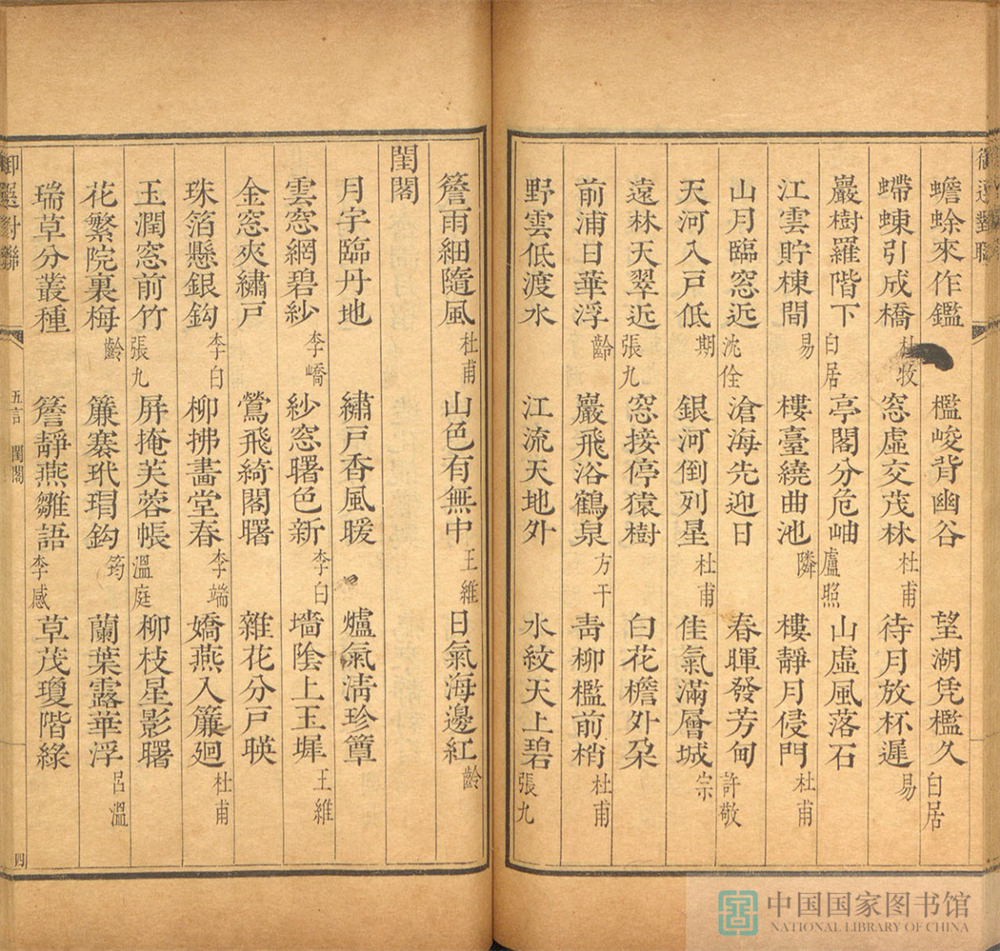 御選對聯
蟾蜍來作鑑 檻峻背幽谷 望湖凭檻久 白居
螮蝀引成橋 杜牧 窓虛交茂林 杜甫 待月放杯遲 易
巖樹羅階下 白居 亭閣分危岫 盧照 山虛風落石
江雲貯棟間 易 樓臺繞曲池 隣 樓靜月侵門 杜甫
山月臨窓近 沈佺 滄海先迎日 春暉發芳甸 許敬
天河入戸低 期 銀河倒列星 杜甫 佳氣滿層城 宗
遠林天翠近 張九 窓接停猿樹 白花檐外朶
前浦日華浮 齡 巖飛浴鶴泉 方干 靑柳檻前梢 杜甫
野雲低渡水 江流天地外 水紋天上碧 張九
簷雨細隨風 杜甫 山色有無中 王維 日氣海邊紅 齡
閨閣
月宇臨丹地 繡戸香風暖 爐氣淸珍簟
雲窓網碧紗 李嶠 紗窓曙色新 李白 墻陰上玉墀 王維
金窓夾繡戸 鶯飛綺閣曙 雜花分戸暎
珠箔懸銀鈎 李白 柳拂畫堂春 李端 嬌燕入簾廻 杜甫
玉潤窓前竹 張九 屏掩芙蓉帳 溫庭 柳枝星影曙
花繁院裏梅 齡 簾褰玳瑁鈎 筠 蘭葉露華浮 呂溫
瑞草分叢種 簷靜燕雛語 李咸 草茂瓊階綠
御選對聯 五言 閨閣 四
中国国家图书馆
NATIONAL LIBRARY OF CHINA